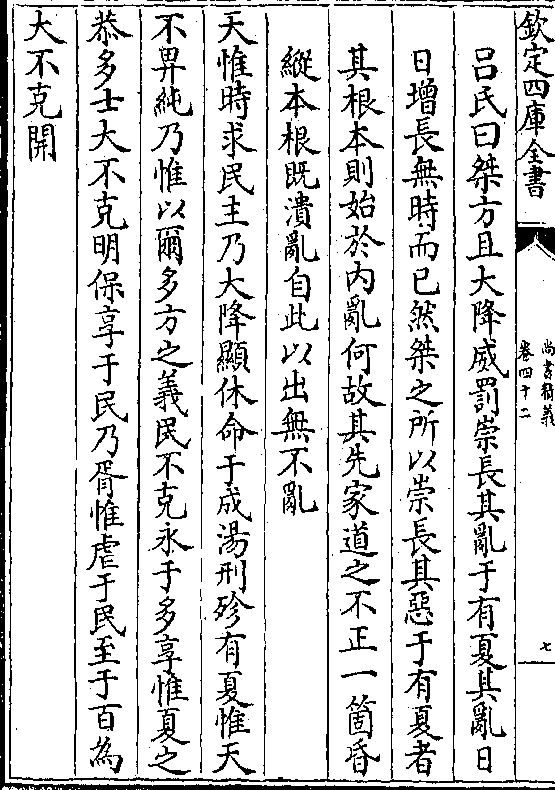 欽定四庫全書
尚書精義
卷四十二
七
呂氏曰桀方且大降威罰崇長其亂于有夏其亂日
日增長無時而已然桀之所以崇長其惡于有夏者
其根本則始於內亂何故其先家道之不正一箇昏
縱本根既潰亂自此以出無不亂
天惟時求民主乃大降顯休命于成湯刑殄有夏惟天
不畀純乃惟以爾多方之義民不克永于多享惟夏之
恭多士大不克明保享于民乃胥惟虐于民至于百為
大不克開